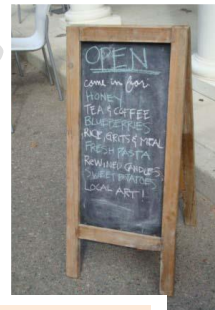 OPEN
come in for
HONEY
TEA & COFFEE
BLUEBERRIES
RICE, GRITS & MEAL
FRESH PASTA
REWINED CANDLES
SWEET POTATOES
LOCAL ART!